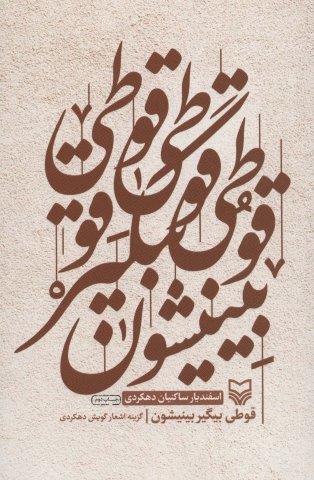 قوطی
قوطی
قوطی
قوطی
بیگیر
بینیشون
اسفندیار ساکنیان دهکردی
چاپ دوم
قوطی بیگیر بینیشون | گزینه اشعار گویش دهکردی